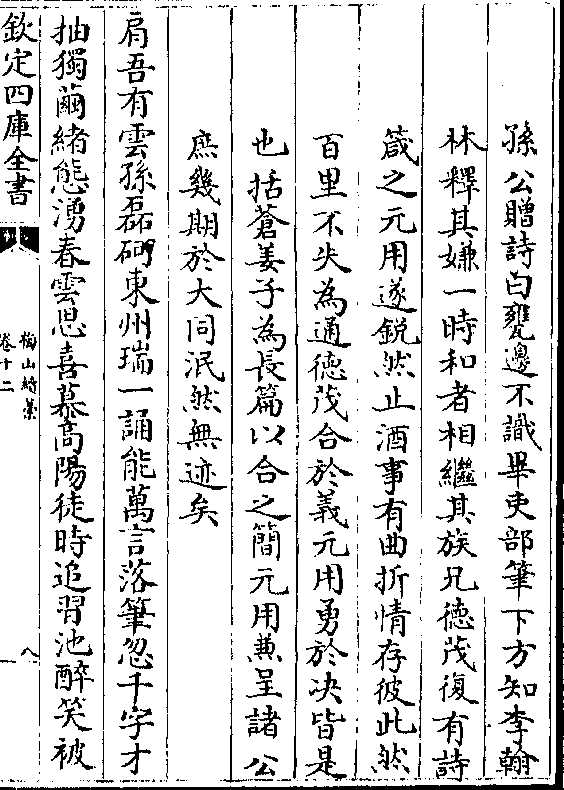 孫公贈詩白甕邊不識畢吏部筆下方知李翰
林釋其嫌一時和者相繼其族兄徳茂復有詩
箴之元用遂鋭然止酒事有曲折情存彼此然
百里不失為通徳茂合於義元用勇於决皆是
也括蒼姜子為長篇以合之簡元用兼呈諸公
庶幾期於大同泯然無迹矣
扃吾有雲孫磊砢東州瑞一誦能萬言落筆忽千字才
抽獨繭緒態湧春雲思喜慕髙陽徒時追習池醉笑被
欽定四庫全書
梅山續藁
卷十二
八